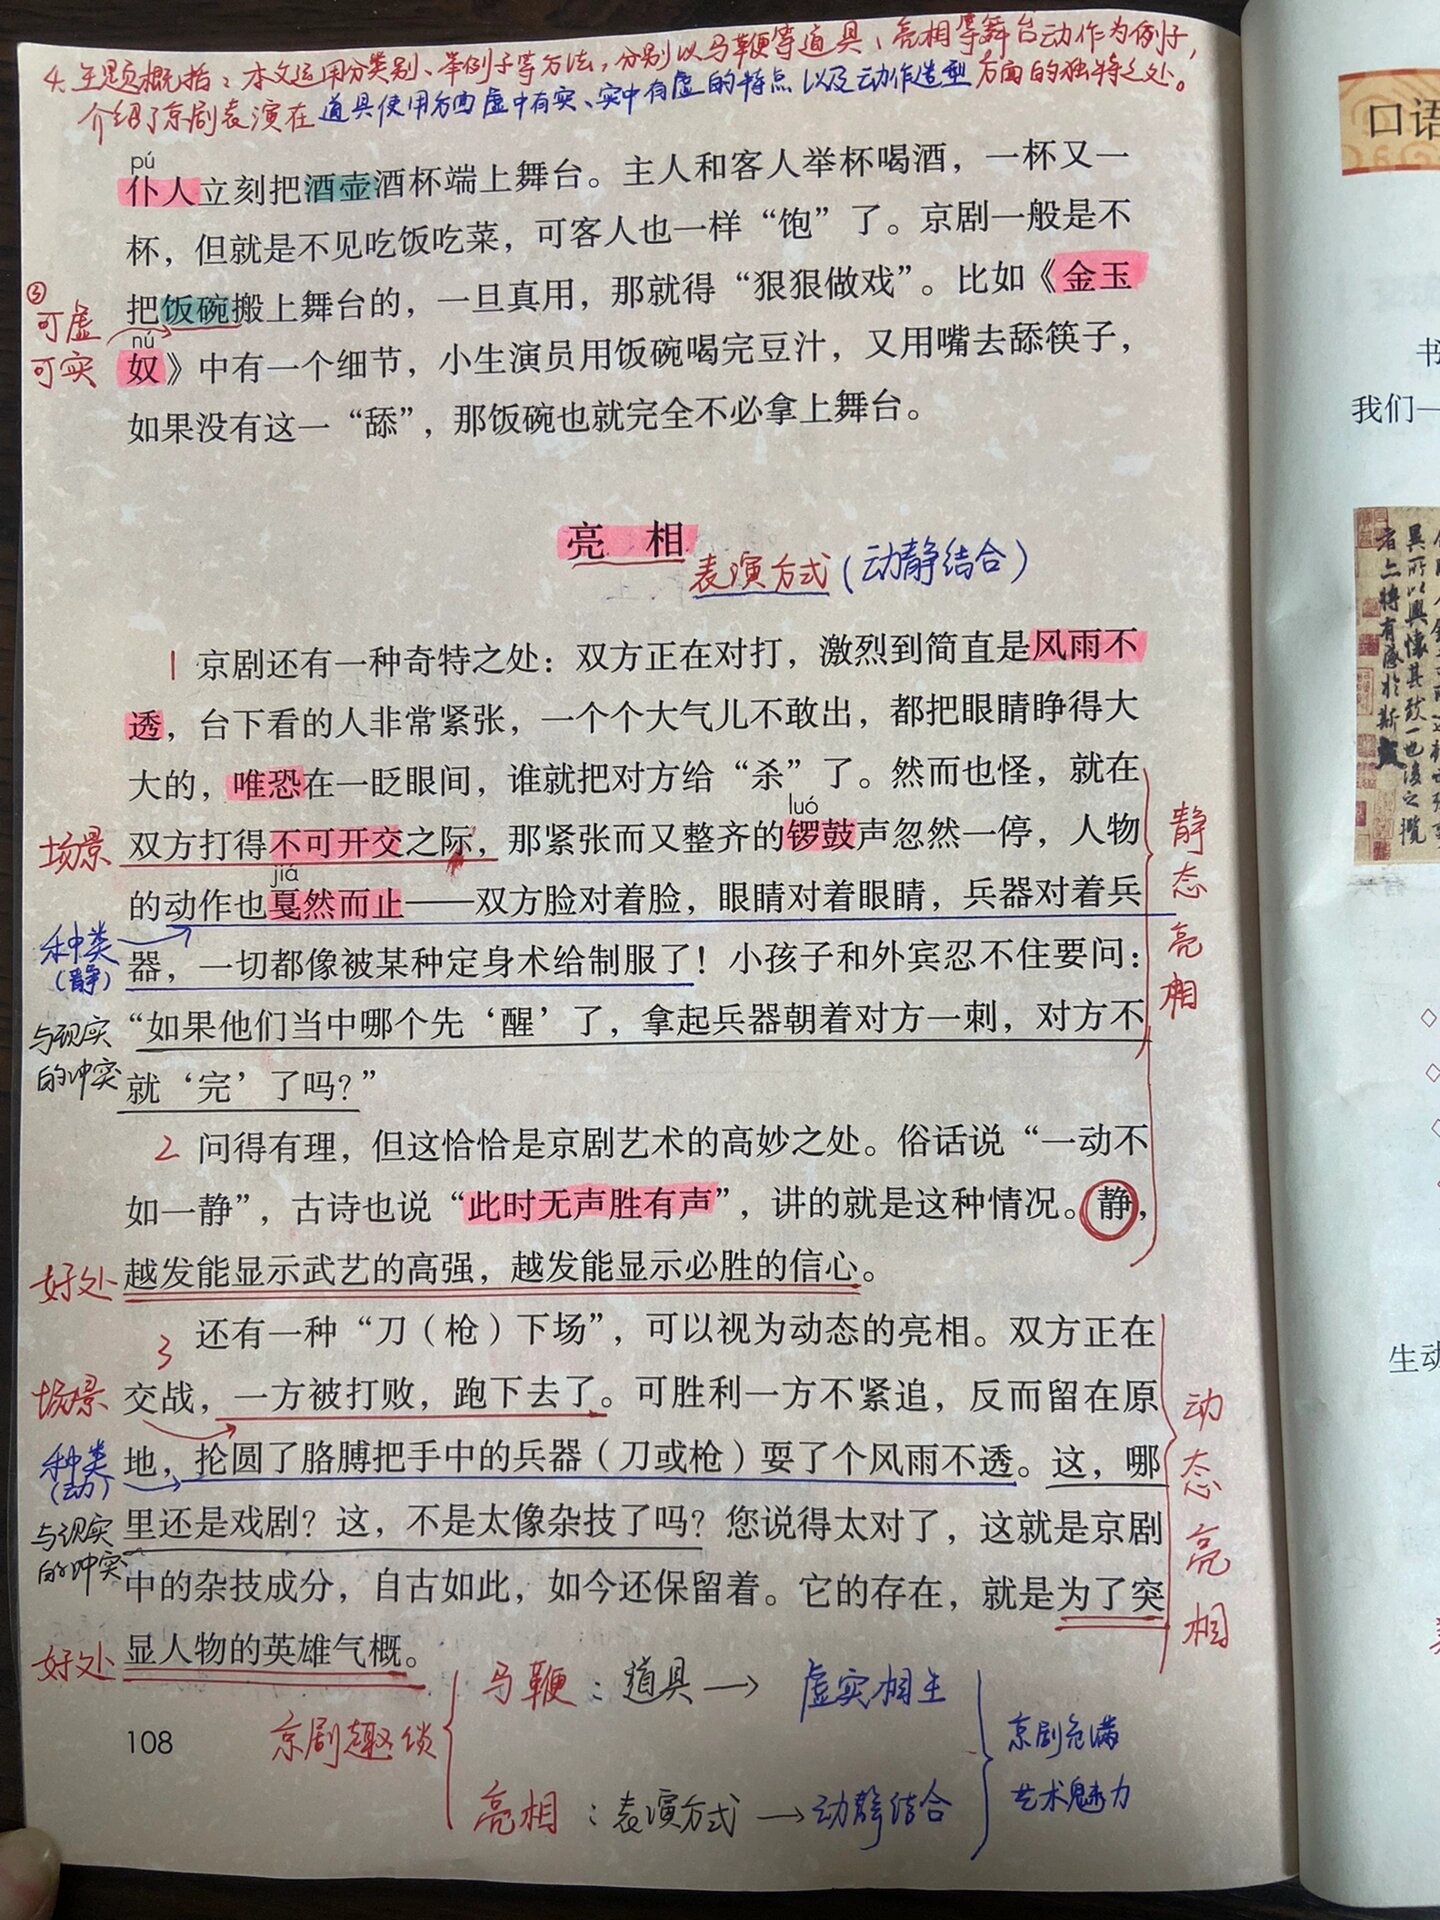 4.主题概括：本文运用分类别、举例子等方法，分别以马鞭等道具、亮相等舞台动作为例子，
介绍了京剧表演在道具使用方面虚中有实、实中有虚的特点以及动作造型方面的独特之处。
pú
仆人立刻把酒壶酒杯端上舞台。主人和客人举杯喝酒，一杯又一
杯，但就是不见吃饭吃菜，可客人也一样“饱”了。京剧一般是不
③
可虚
可实
把饭碗搬上舞台的，一旦真用，那就得“狠狠做戏”。比如《金玉
nú
奴》中有一个细节，小生演员用饭碗喝完豆汁，又用嘴去舔筷子，
如果没有这一“舔”，那饭碗也就完全不必拿上舞台。
亮 相
表演方式（动静结合）
1 京剧还有一种奇特之处：双方正在对打，激烈到简直是风雨不
透，台下看的人非常紧张，一个个大气儿不敢出，都把眼睛睁得大
大的，唯恐在一眨眼间，谁就把对方给“杀”了。然而也怪，就在
luó
场景 双方打得不可开交之际，那紧张而又整齐的锣鼓声忽然一停，人物
jiá
的动作也戛然而止——双方脸对着脸，眼睛对着眼睛，兵器对着兵
种类
（静）
器，一切都像被某种定身术给制服了！小孩子和外宾忍不住要问：
与现实
的冲突
“如果他们当中哪个先‘醒’了，拿起兵器朝着对方一刺，对方不
就‘完’了吗？”
静态亮相
2 问得有理，但这恰恰是京剧艺术的高妙之处。俗话说“一动不
如一静”，古诗也说“此时无声胜有声”，讲的就是这种情况。静，
好处 越发能显示武艺的高强，越发能显示必胜的信心。
3 还有一种“刀（枪）下场”，可以视为动态的亮相。双方正在
场景 交战，一方被打败，跑下去了。可胜利一方不紧追，反而留在原
种类
（动）
地，抡圆了胳膊把手中的兵器（刀或枪）耍了个风雨不透。这，哪
与现实
的冲突
里还是戏剧？这，不是太像杂技了吗？您说得太对了，这就是京剧
中的杂技成分，自古如此，如今还保留着。它的存在，就是为了突
好处 显人物的英雄气概。
动态亮相
京剧趣谈
马鞭：道具→虚实相生
亮相：表演方式→动静结合
京剧充满
艺术魅力
108
口语
书
我们一
生动